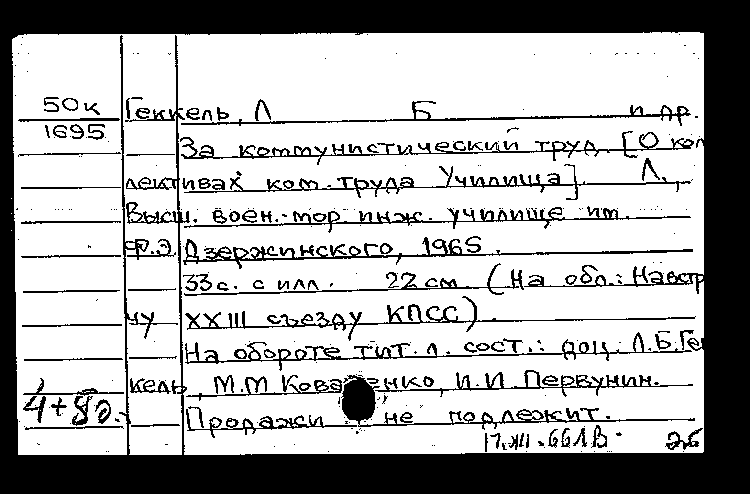 50к Геккель, Л Б и др.
1695
За коммунистический труд. [О кол
лективах ком. труда Училища]. Л.,
Высш. воен.-мор. инж. училище им.
Ф.Э. Дзержинского, 1965.
33 с. с илл. 22 см. (На обл.: Навстре
чу XXIII съезду КПСС).
На обороте тит. л. сост.: доц. Л.Б.Гек
кель, М.М Коваленко, И.И. Первунин.
4+8д. Продажи не подлежит.
17.XII.66 ЛВ. 2б